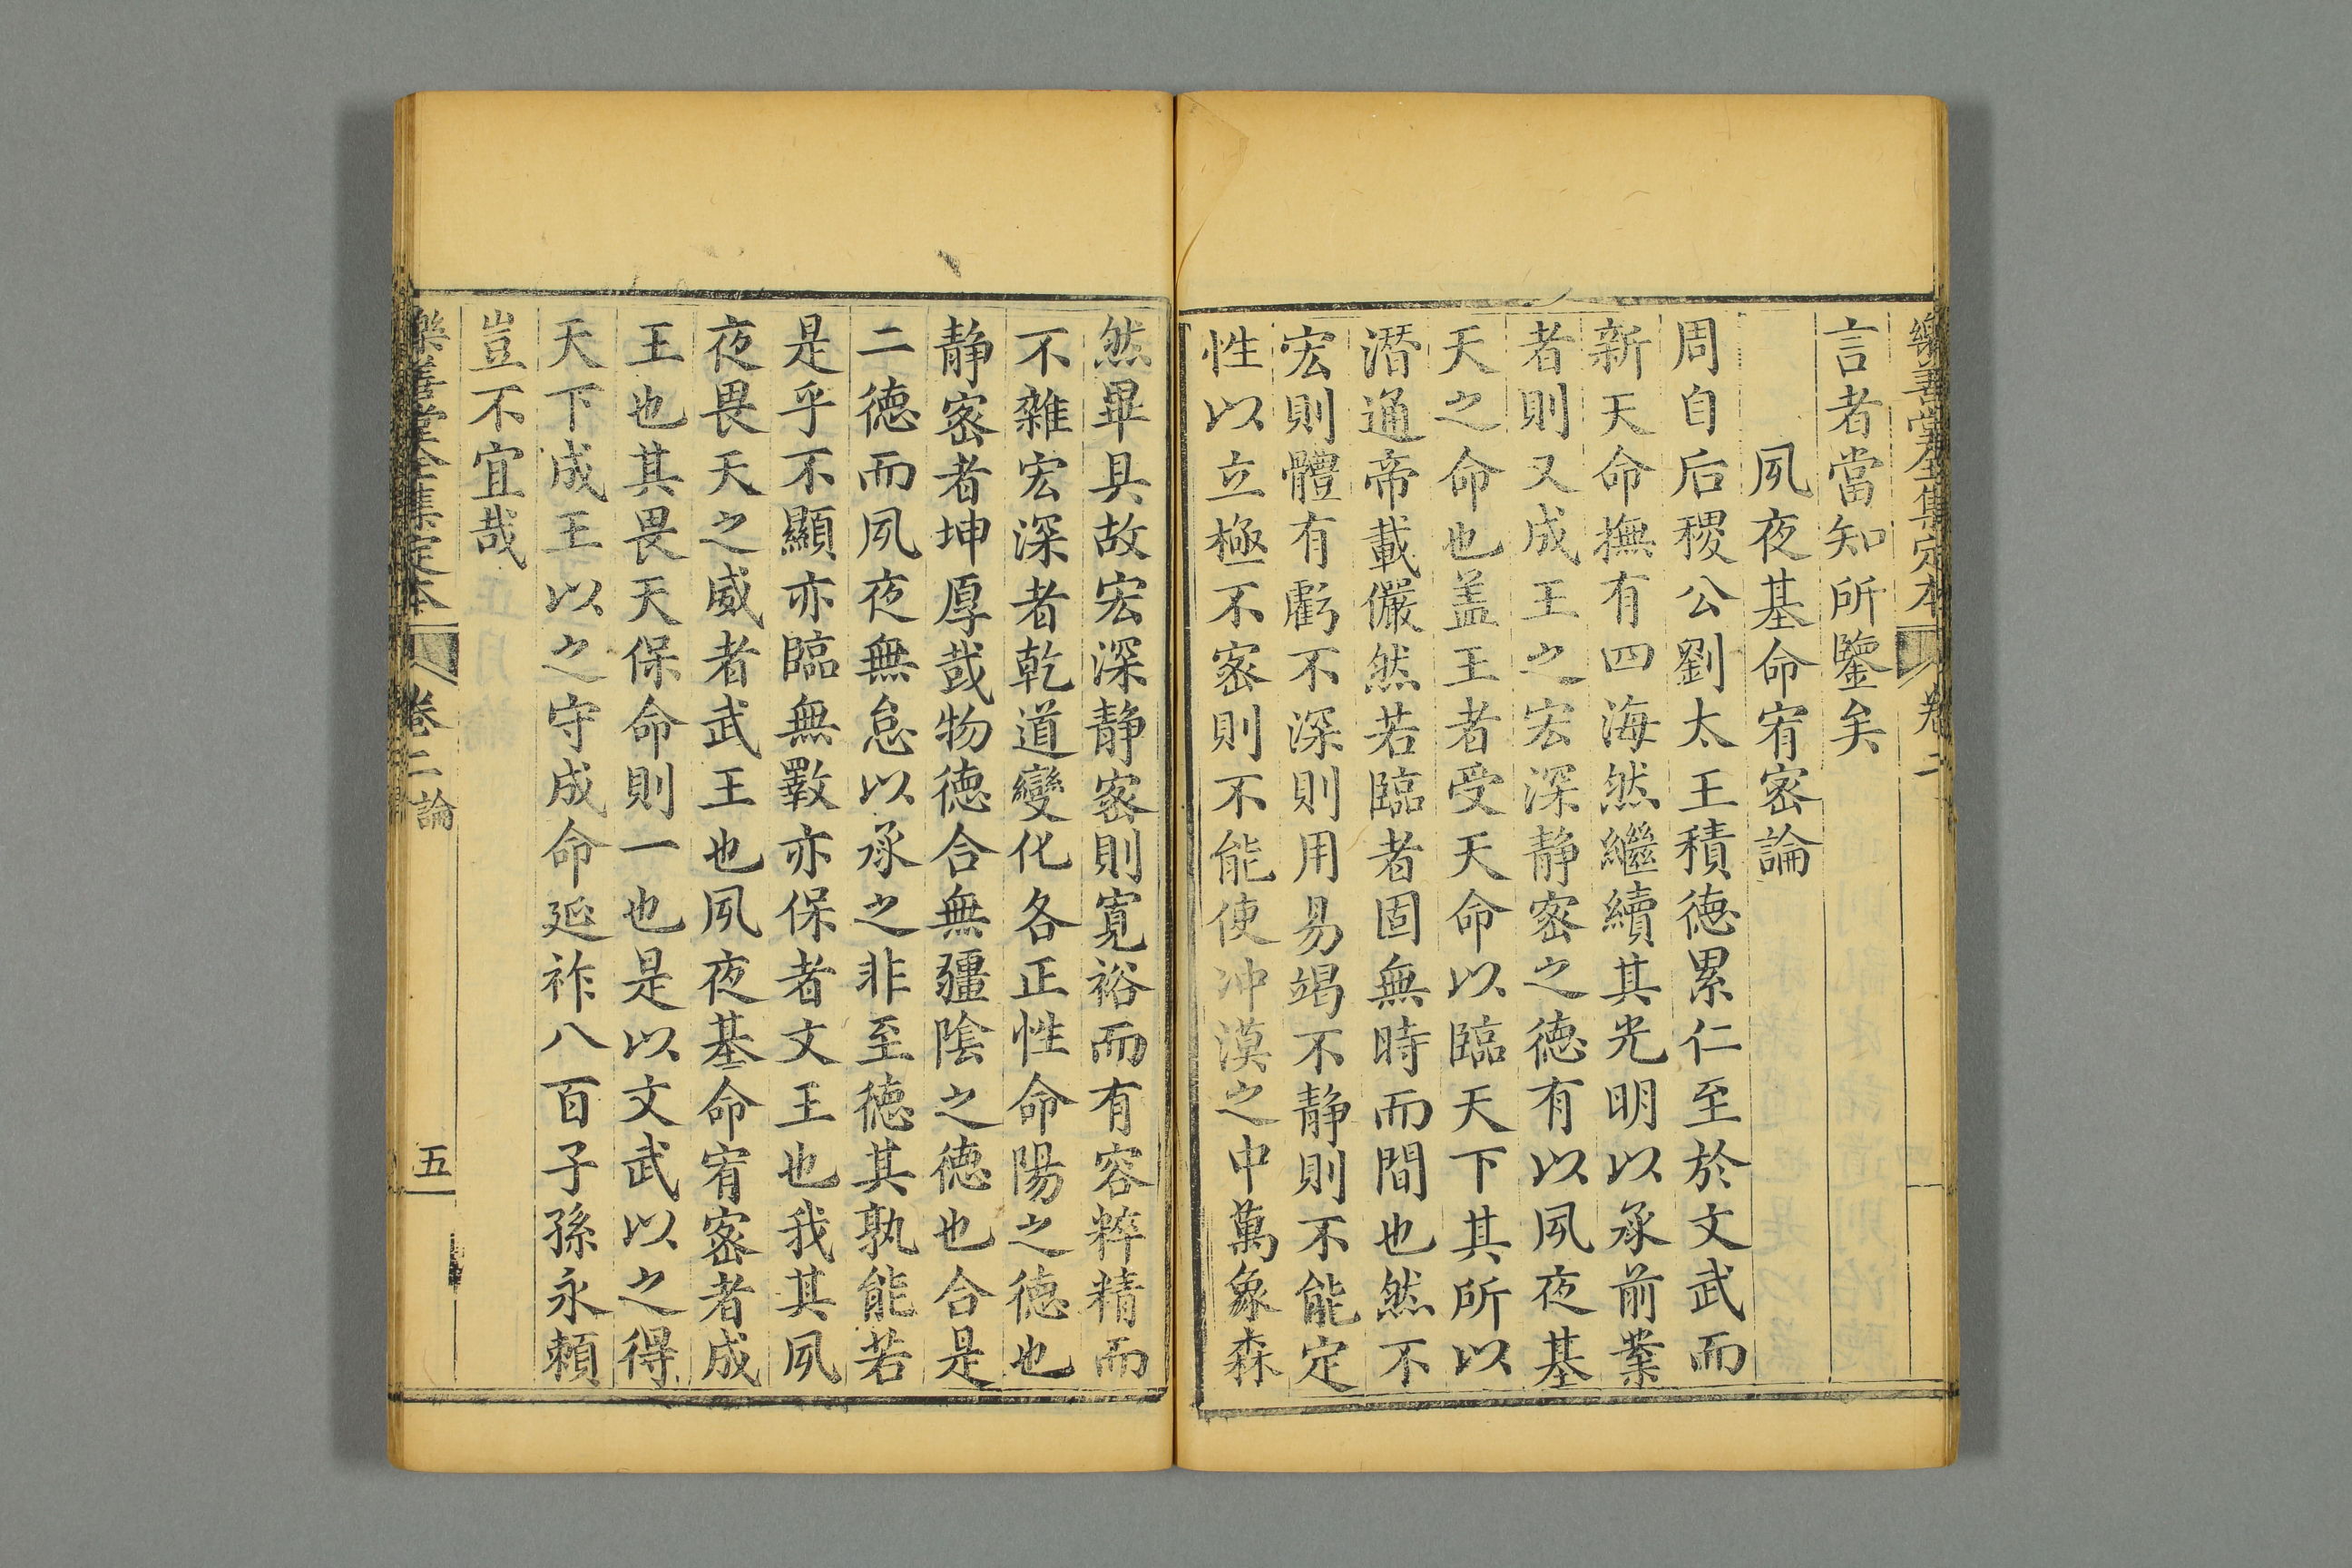 樂善堂全集定本 卷二
言者當知所鑒矣
夙夜基命宥密論
周自后稷公劉太王積德累仁至於文武而
新天命撫有四海然繼續其光明以承前業
者則又成王之宏深静密之德有以夙夜基
天之命也蓋王者受天命以臨天下其所以
潛通帝載儼然若臨者固無時而間也然不
宏則體有虧不深則用易竭不静則不能定
性以立極不密則不能使冲漠之中萬象森
然畢具故宏深静密則寛裕而有容粹精而
不雜宏深者乾道變化各正性命陽之德也
静密者坤厚哉物德合無疆陰之德也合是
二德而夙夜無怠以承之非至德其孰能若
是乎不顯亦臨無斁亦保者文王也我其夙
夜畏天之威者武王也夙夜基命宥密者成
王也其畏天保命則一也是以文武以之得
天下成王以之守成命延祚八百子孫永頼
豈不宜哉
樂善堂全集定本 卷二 論 五